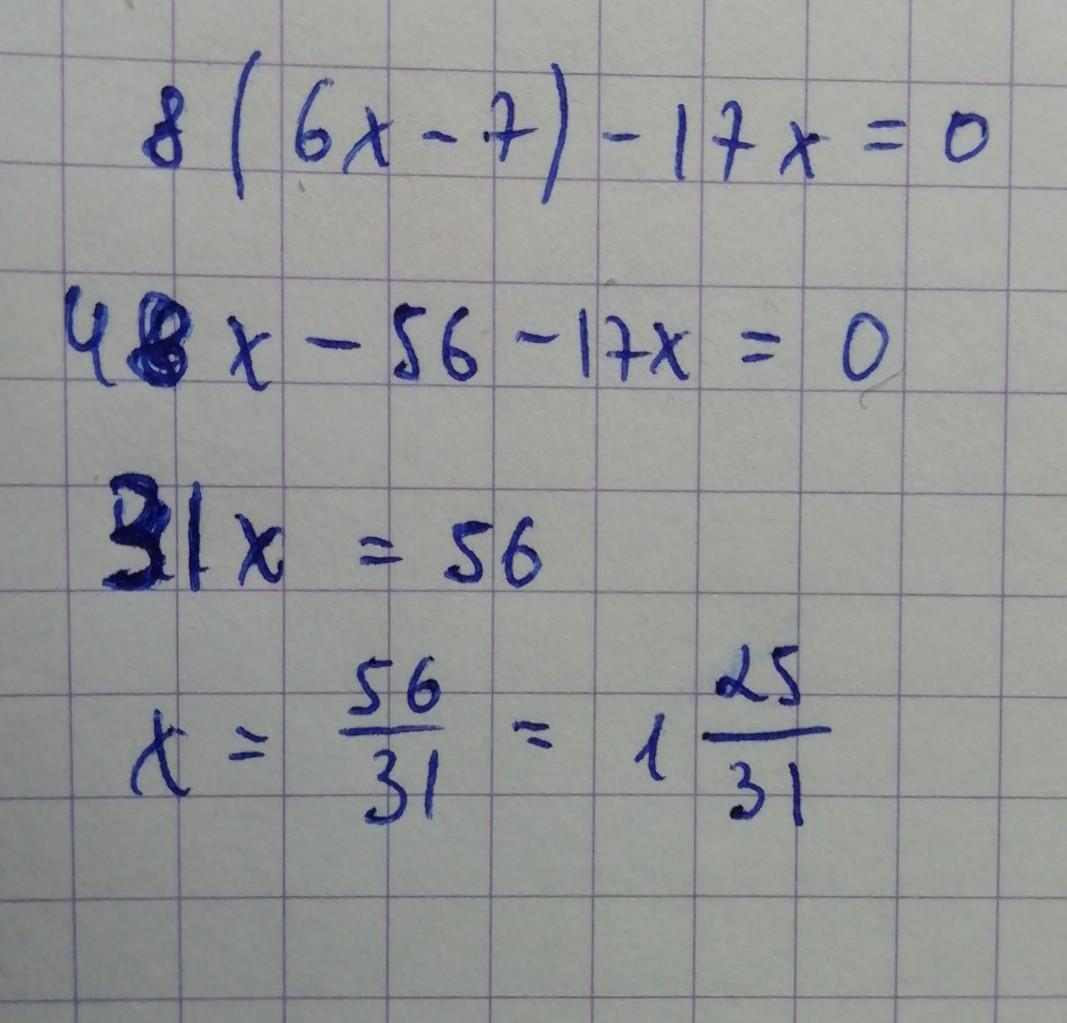 8(6x-7)-17x=0
48x-56-17x=0
31x=56
x=56/31=1 25/31